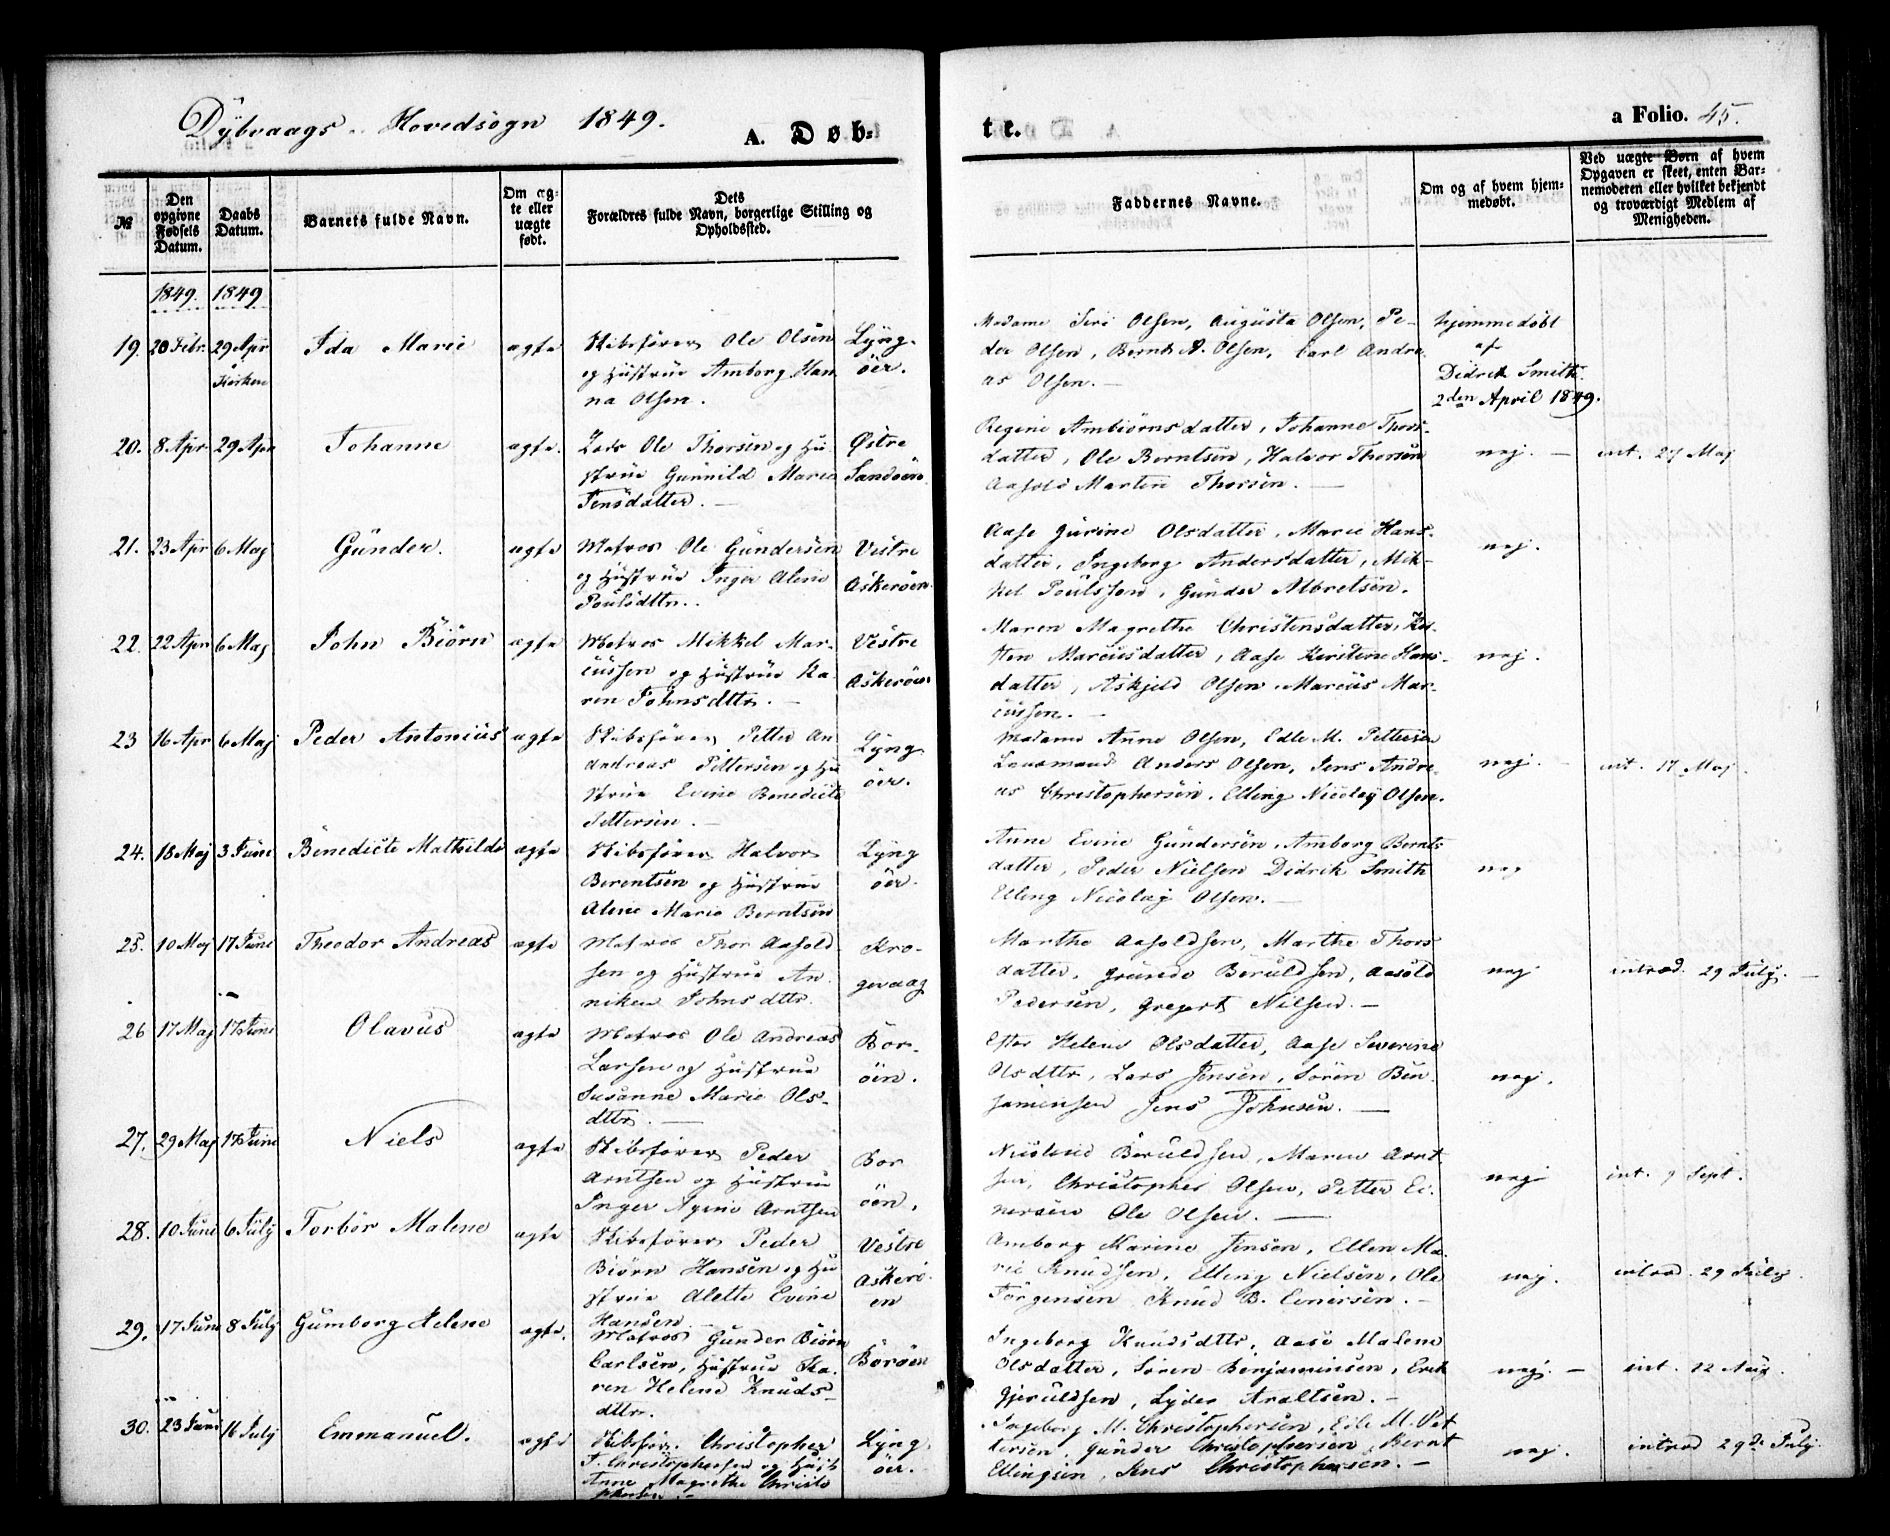 Dybvaags Hovedsogn 1849.
A. Døb=
te.
a Folio. 45.
№
Den opgivne Fødsels Datum.
Daabs Datum.
Barnets fulde Navn.
Om æg-te eller uægte født.
Dets Forældres fulde Navn, borgerlige Stilling og Opholdssted.
Faddernes Navne.
Om og af hvem hjem-medøbt.
Ved uægte Børn af hvem Opgaven er skeet, enten Bar-nemoderen eller hvilket bekjendt og troværdigt Medlem af Menigheden.
1849. 1849
19. 20 Febr. 29 Apr Kirken
Ida Marie
ægte
Skibsfører Ole Olsen
og Hustrue Amborg Han
na Olsen.
Lyng-
öer.
Madame Seri Olsen, Augusta Olsen, Pe-
der Olsen, Bernt A. Olsen, Carl Andre
as Olsen. —
hjemmedøbt
af
Didrik Smith
2den April 1849.
20. 8 Apr 29 Apr
Johanne
ægte.
Lods Ole Thorsen og Hu
strue Gunnild Marie
Jensdatter. —
Østre
Sandøen
Regine Ambiörnsdatter, Johanne Thors-
datter, Ole Berntsen, Halvor Thorsen
Aasold Martin Thorsen. —
nej. —
int. 27 Maj
21. 23 Apr 6 Maj
Günder.
ægte
Matros Ole Gündersen
og Hustrue Inger Alene
Poulsdttr.
Vestre
Askerøen.
Aase Gurine Olsdatter, Marie Hans-
datter, Ingeborg Andersdatter, Mik-
kel Poulssen, Günder Albretsen.
nej.
22. 22 Apr 6 Maj
John Biörn
ægte
Matros Mikkel Mar-
cussen og Hustrue Ka-
ren Johnsdttr. —
Vestre
Askeröen
Maren Magrethe Christensdatter, Kir-
sten Marcusdatter, Aase Kirstine Hans-
datter, Askjeld Olsen, Marcus Mar-
cussen. —
nej.
23 16 Apr 6 Maj
Peder Antonius
ægte
Skibsfører Petter An
andreas Pettersen og Hu
strue Evine Benedicte
Pettersen. —
Lyng
öer.
Madame Anne Olsen, Edle M. Pettersen
Lensmand Anders Olsen, Jens Andre-
as Christophersen. Elling Nicolay Olsen.
nej. —
int. 17 Maj.
24. 18 Maj 3 Juni
Benedicte Mathilde
ægte
Skibsfører Halvor
Berentsen og Hustrue
Alene Marie Berntsen
Lyng
öer.
Anne Evine Gundersen, Amborg Bernts
datter, Peder Nielsen Didrik Smith
Elling Nicolay Olsen. —
nej
25. 10 Maj 17 Juni
Theodor Andreas
ægte
Matros Thor Aasold-
sen og Hustrue An-
niken Johnsdttr.
Kro-
gevaag
Marthe Aasoldsen, Marthe Thors
datter, Gunde Beruldsen, Aasold
Pedersen, Gregert Nilsen. —
nej
introd. 29 July. —
26 17 Maj 17 Juni
Olavus
ægte
Matros Ole Andreas
Larsen og Hustrue
Susanne Marie Ols-
dttr. —
Bor-
öen.
Ester Helene Olsdatter, Aase Severine
Olsdttr, Lars Jensen, Sören Ben-
jaminsen Jens Johnsen. —
nej.
27. 29 Maj 17 Juni
Niels
ægte
Skibsfører Peder
Arntsen og Hustrue
Inger Nyene Arntsen
Bor
öen.
Nicoline Beruldsen, Maren Arnt
sen, Christopher Olsen, Petter Ei-
nersen Ole Olsen. —
nej
int. 9 Sept.
28. 10 Juni 6 July
Torbör Malene
ægte
Skibsfører Peder
Biörn Hansen og Hu
strue Alette Evine
Hansen.
Vestre
Askerö-
en
Amborg Karine Jensen, Ellen Ma-
rie Knudsen, Elling Nielsen, Ole
Jörgensen Knud B. Einersen. —
nej.
introd. 29 July.
29. 17 Juni 8 July
Gumborg Helene
ægte.
Matros Gunder Biörn
Carlsen, Hustrue Ka-
ren Helene Knuds-
dttr.
Boröen
Ingeborg Knudsdttr, Aase Malene
Olsdatter, Sören Benjaminsen, Erik
Gjeruldsen, Lyder Araltsen. —
nej. —
int. 12 Aug.
30. 23 Juni 16 July
Emmanuel.
ægte
Skibsför. Christopher
F. Christophersen og Hust
Anne Magrethe Christo
phersen —
Lyng
öer.
Ingeborg M. Christophersen, Edle M. Pet
tersen, Gunder Christophersen, Bernt
Ellingsen, Jens Christophersen. —
nej.
introd 29de July.